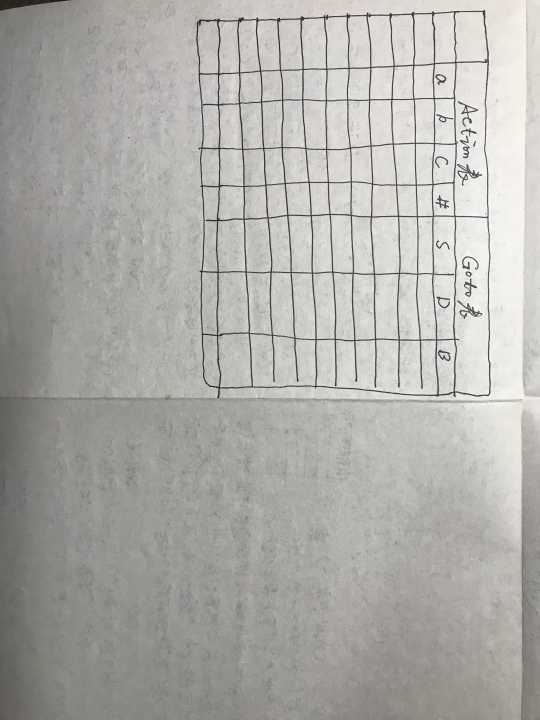 Action表 Goto表
a b c # S D B